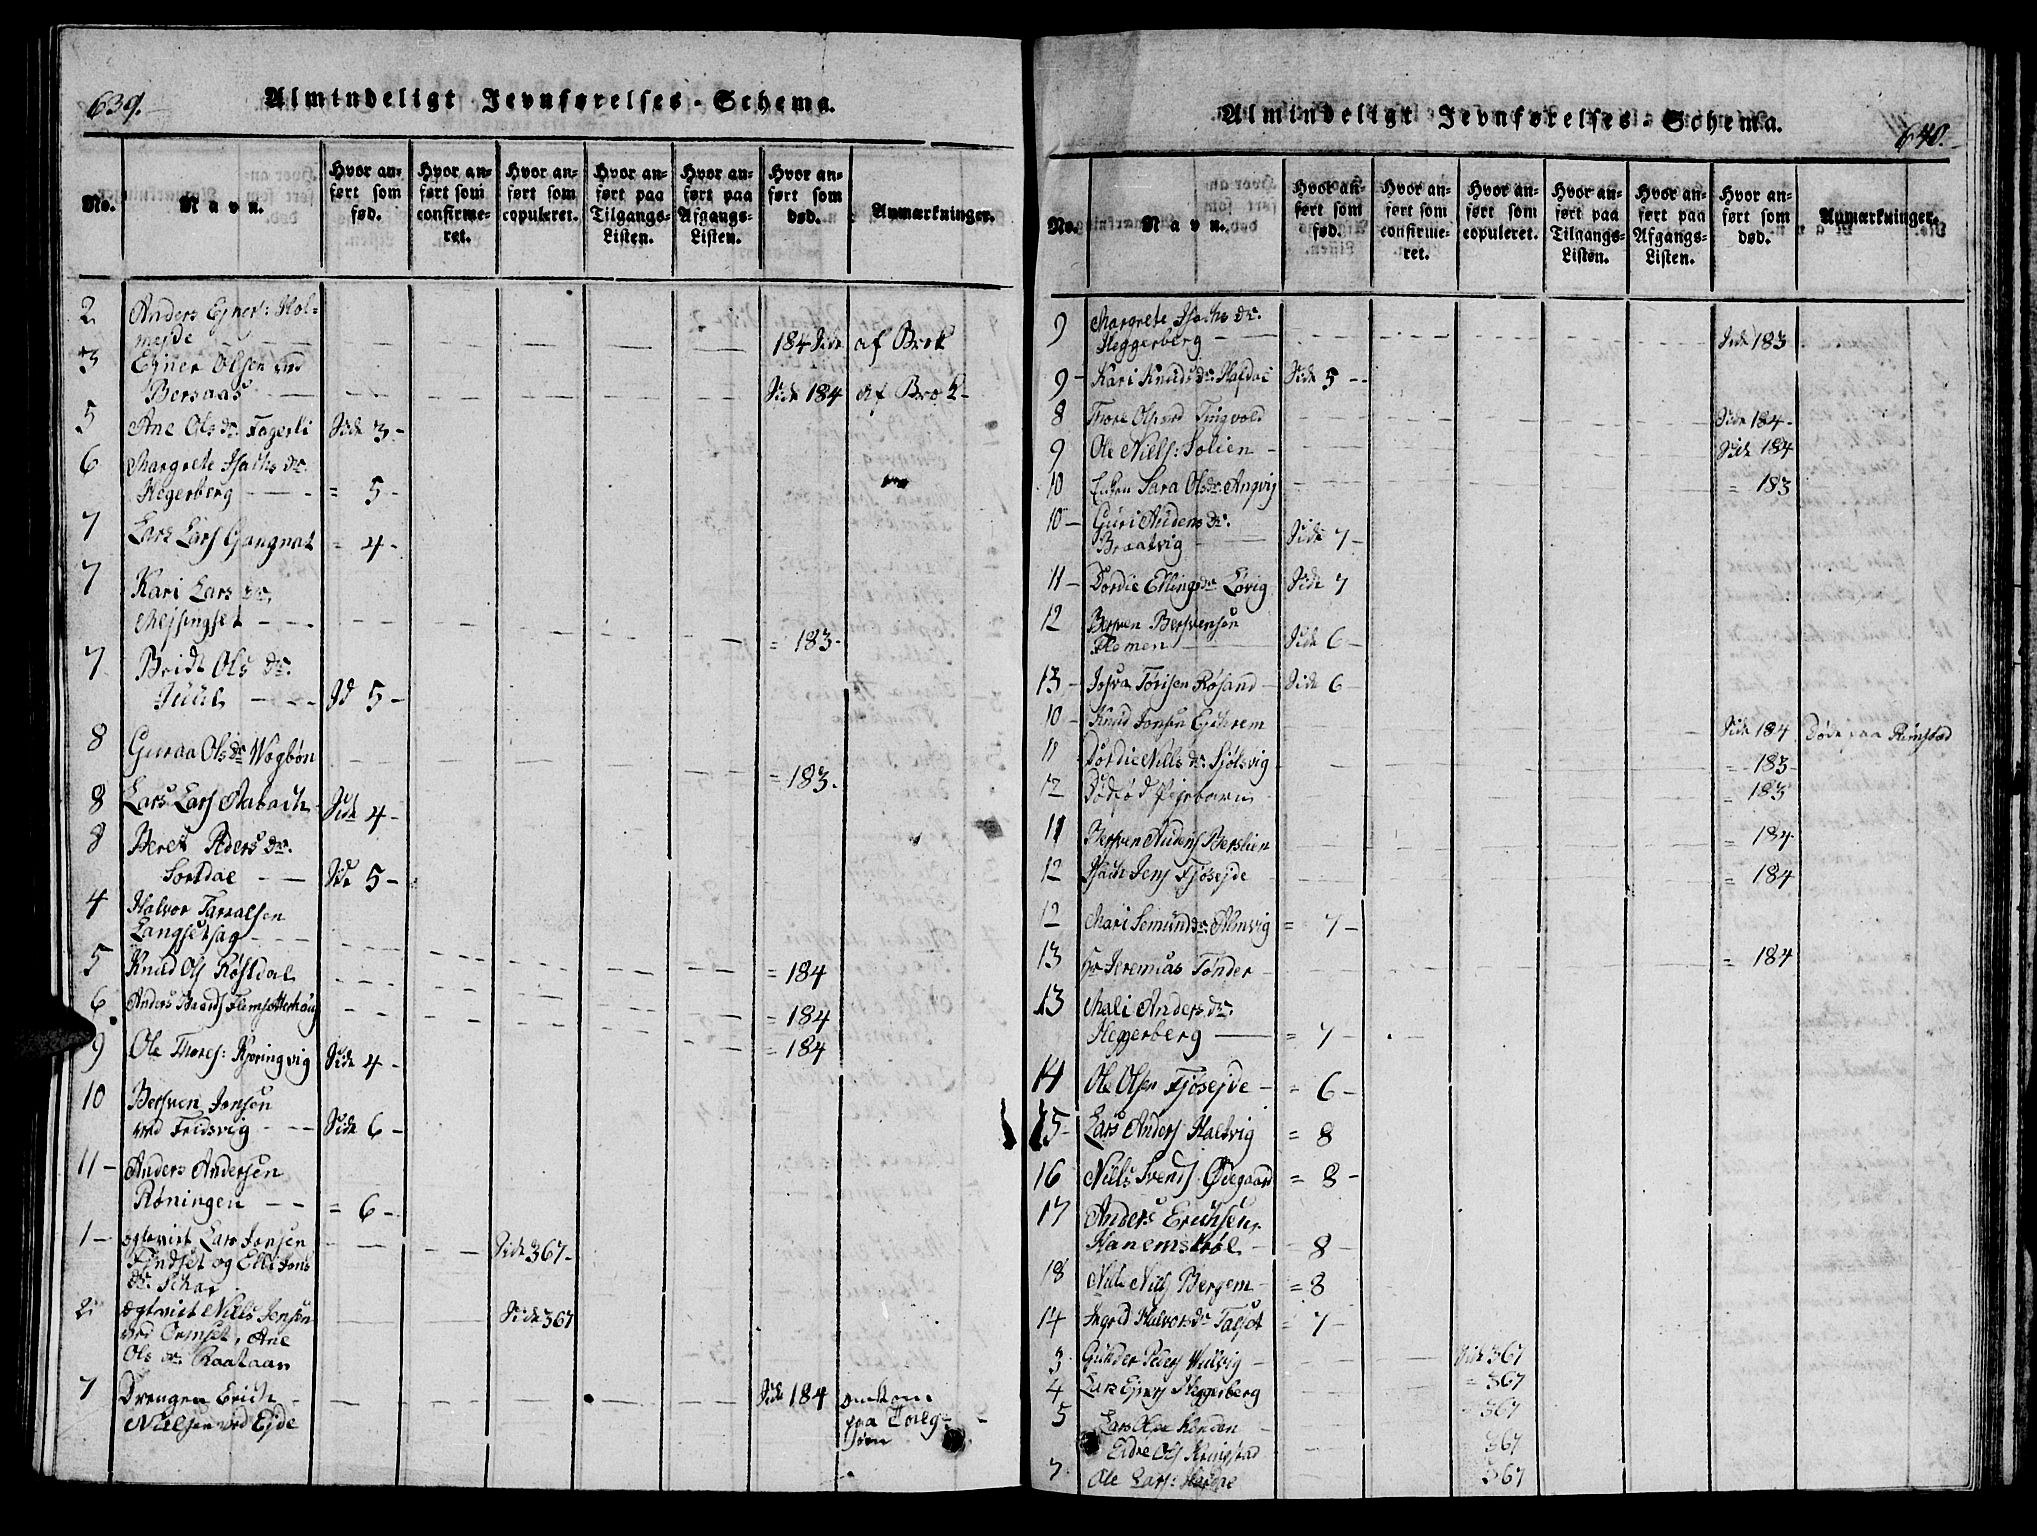 639.
Almindeligt Jevnførelses-Schema.
No.
Navn.
Hvor an-
ført som
fød.
Hvor an-
ført som
confirme-
ret.
Hvor an-
ført som
copuleret.
Hvor an-
ført paa
Tilgangs-
Listen.
Hvor an-
ført paa
Afgangs-
Listen.
Hvor an-
ført som
død.
Anmærkninger.
2 Anders Ejners: Hol-
mejde 184 Side af Brok
3 Ejner Olsen ved
Bersaas Side 184 af Brok
5 Ane Ols dr. Fagerli Side 3
6 Margrete Isachs dr.
Hegerberg = 5
7 Lars Lars Gangnat = 4
7 Kari Lars dr.
Mejsingset = 183
7 Bridt Ols dr.
Juul Sd 5
8 Guraa Ols dr Wogbøn = 183.
8 Lars Lars Aabach Side 4
8 Beret Peders dr.
Sortdae Side 5
4 Halvor Tarralsen
Langsetsag = 184
5 Knud Ols Røstdal = 184
6 Anders Baards Flemsetterhaug = 184
9 Ole Thores: Kjøringvig Side 4
10 Bersven Jonsen
ved Fredsvig Side 6
11 Anders Andersen
Røningen = 6
1 ægteviet Lars Jonsen
Fundset og Elle Jons
dr. Schar Side 367
2 ægteviet Niels Jonsen
ved Ormset, Ane
Ols dr. Raataar Side 367
7 Drengen Erich
Nielsen ved Ejde Side 184 omkom
paa Torleg-
søen
Almindeligt Jevnførelses-Schema.
640.
No.
Navn.
Hvor an-
ført som
fød.
Hvor an-
ført som
confirme-
ret.
Hvor an-
ført som
copuleret.
Hvor an-
ført paa
Tilgangs-
Listen.
Hvor an-
ført paa
Afgangs-
Listen.
Hvor an-
ført som
død.
Anmærkninger.
9 Margrete Isachs dr.
Heggerberg Side 183
9 Kari Knuds dr. Hafdal Side 5
8 Thore Ols ved Tingvold Side 184
9 Ole Niels: Solien Side 184
10 Enken Sara Ols dr. Angvig = 183
10 Guri Audens dr.
Braatvig Side 7
11 Dordie Ellings dr Løvig Side 7
12 Bersven Bersvensen
Flemen Side 6
13 Josva Tørisen Røsand Side 6
10 Knud Jonsen Gjchrem Side 184 Døde paa Rimstad
11 Dordie Niels dr. Sjølsvig = 183
12 Dødfød Pigebarn = 183
11 Bersven Audens Berslien = 184
12 Isach Jens Fjøsejde = 184
12 Mari Semund dr. Almvig = 7
13 Hr Jeremias Tønder = 184
13 Mali Anders dr.
Heggerberg = 7
14 Ole Olsen Fjøsejde = 6
15 Lars Anders Haltvig = 8
16 Niels Svends Ødegaard = 8
17 Anders Erichsen
Hanemstrøe 8
18 Niels Niels Bergem = 8
14 Ingred Halvors dr Talset = 7
3 Gunder Peders Wulvig Side 367
4 Lars Ejners Heggerberg = 367
5 Lars Olsen Konden 367
Endre Ols Kringstad 367
7 Ole Lars: Hagene 367